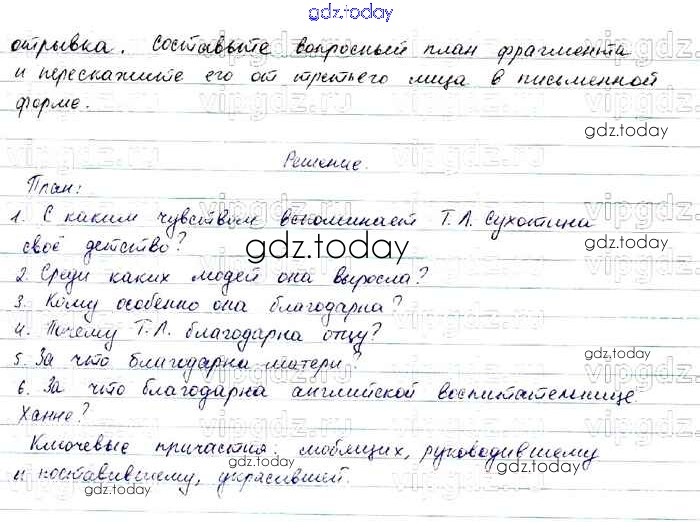 gdz.today
отрывка. Составьте вопросный план фрагмента
и перескажите его от третьего лица в письменной
форме.
gdz.today
Решение.
План:
1. С каким чувством вспоминает Т.Л. Сухотина
своё детство?
gdz.today
2. Среди каких людей она выросла?
3. Кому особенно она благодарна?
4. Почему Т.Л. благодарна отцу?
gdz.today
5. За что благодарна матери?
6. За что благодарна английской воспитательнице
Ханне?
Ключевые причастия: любящих, руководившему
и поставившему, украсившей.
gdz.today
gdz.today